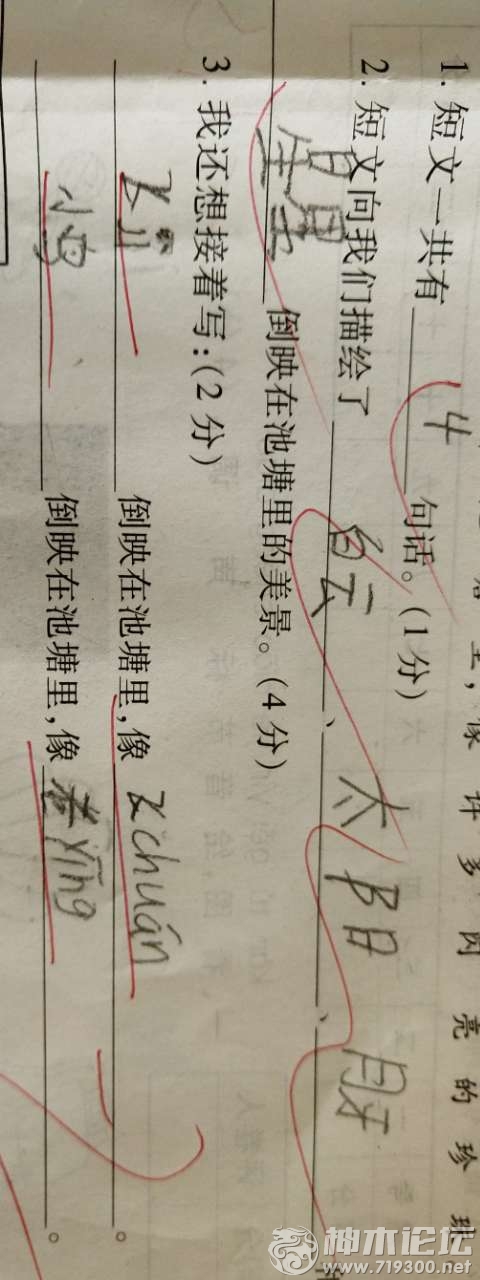 星，像许多闪亮的珍珠
1. 短文一共有 4 句话。（1分）
2. 短文向我们描绘了 白云 、 太阳 、 月牙
星星 倒映在池塘里的美景。（4分）
3. 我还想接着写：（2分）
飞 倒映在池塘里，像 飞chuán 。
小鸟 倒映在池塘里，像 老yīng 。
神木论坛
www.719300.net